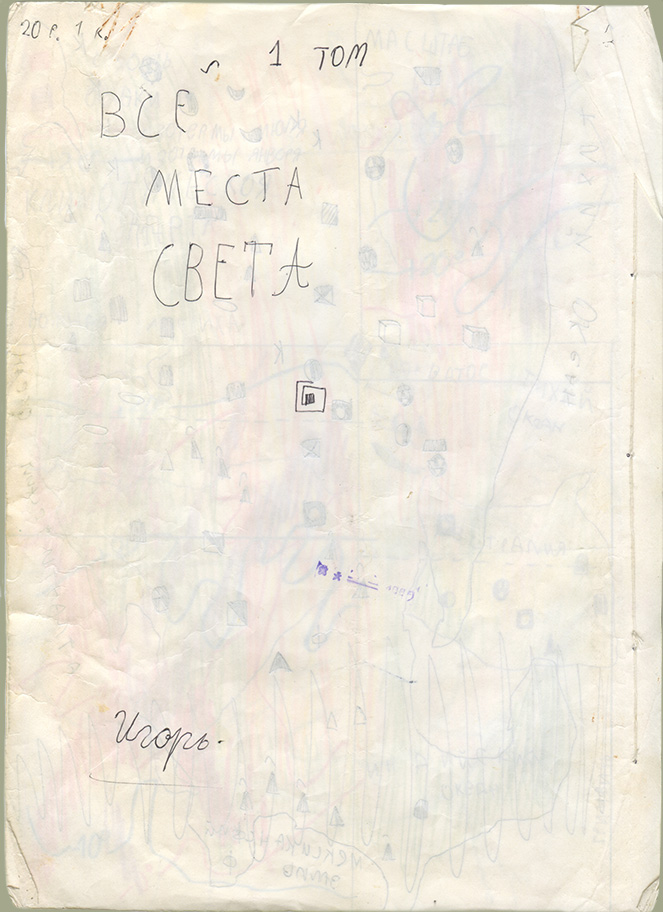 20 р. 1 к.
1 ТОМ
ВСЕ
МЕСТА
СВЕТА
Игорь.